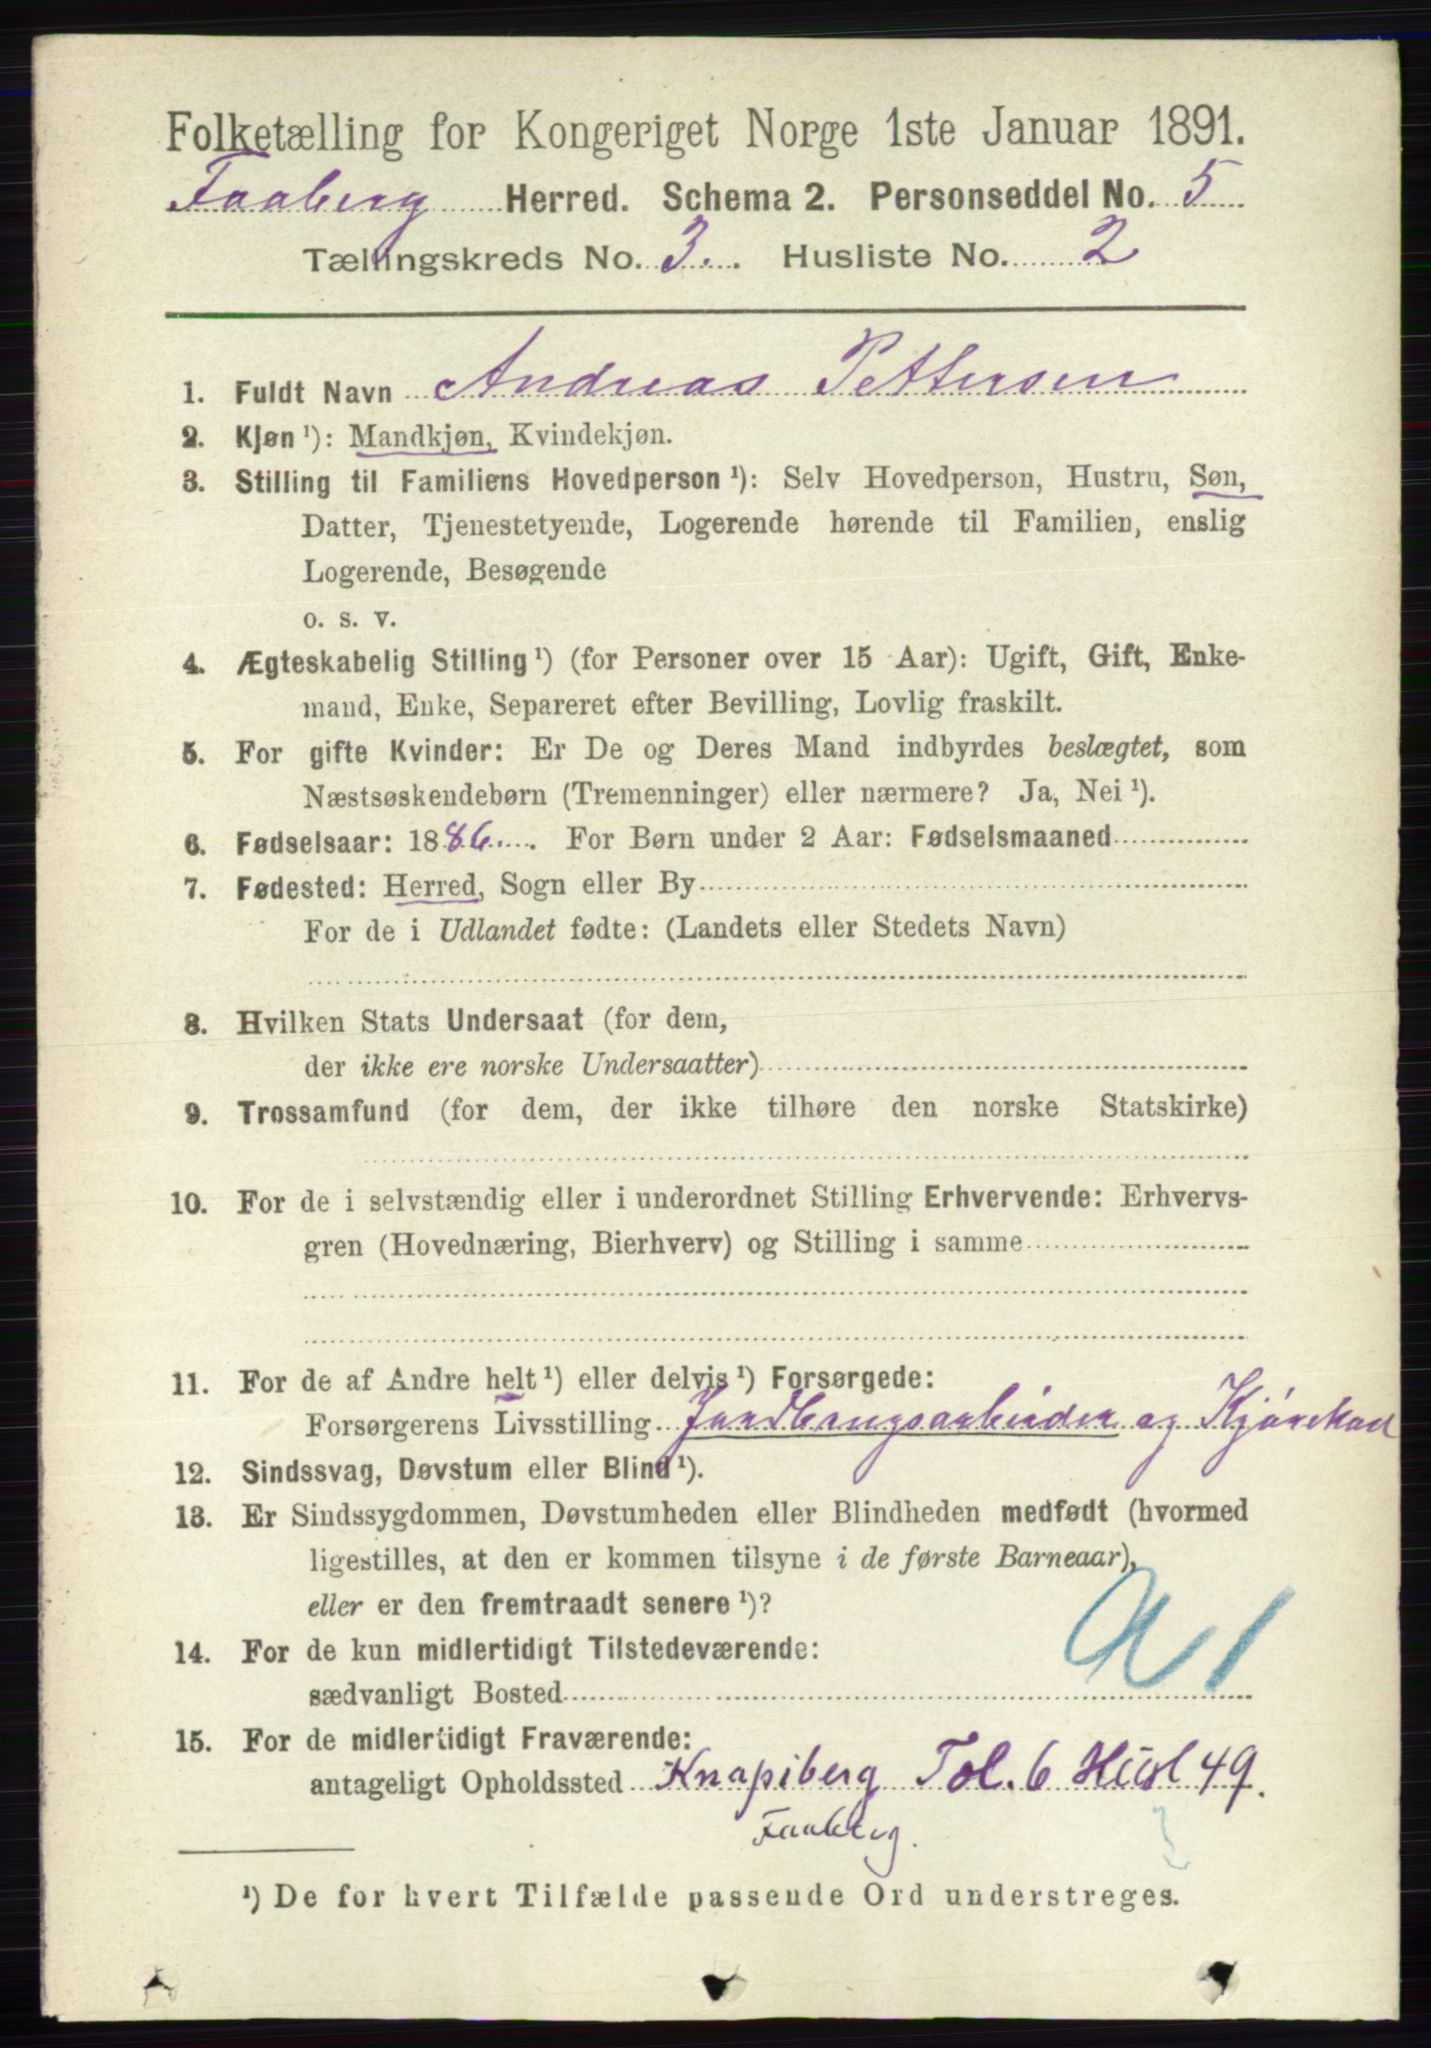 Folketælling for Kongeriget Norge 1ste Januar 1891.
Faaberg Herred. Schema 2. Personseddel No. 5
Tællingskreds No. 3. Husliste No. 2
1. Fuldt Navn Andreas Pettersen
2. Kjøn ¹): Mandkjøn, Kvindekjøn.
3. Stilling til Familiens Hovedperson ¹): Selv Hovedperson, Hustru, Søn,
Datter, Tjenestetyende, Logerende hørende til Familien, enslig
Logerende, Besøgende
o. s. v.
4. Ægteskabelig Stilling ¹) (for Personer over 15 Aar): Ugift, Gift, Enke-
mand, Enke, Separeret efter Bevilling, Lovlig fraskilt.
5. For gifte Kvinder: Er De og Deres Mand indbyrdes beslægtet, som
Næstsøskendebørn (Tremenninger) eller nærmere? Ja, Nei ¹).
6. Fødselsaar: 1886. For Børn under 2 Aar: Fødselsmaaned
7. Fødested: Herred, Sogn eller By
For de i Udlandet fødte: (Landets eller Stedets Navn)
8. Hvilken Stats Undersaat (for dem,
der ikke ere norske Undersaatter)
9. Trossamfund (for dem, der ikke tilhøre den norske Statskirke)
10. For de i selvstændig eller i underordnet Stilling Erhvervende: Erhvervs-
gren (Hovednæring, Bierhverv) og Stilling i samme
11. For de af Andre helt ¹) eller delvis ¹) Forsørgede:
Forsørgerens Livsstilling Jordbrugsarbeider og Kjørekarl
12. Sindssvag, Døvstum eller Blind ¹).
13. Er Sindssygdommen, Døvstumheden eller Blindheden medfødt (hvormed
ligestilles, at den er kommen tilsyne i de første Barneaar),
eller er den fremtraadt senere ¹)?
14. For de kun midlertidigt Tilstedeværende:
sædvanligt Bosted
15. For de midlertidigt Fraværende:
antageligt Opholdssted Knapiberg Tol. 6 Husl 49.
Faaberg.
¹) De for hvert Tilfælde passende Ord understreges.